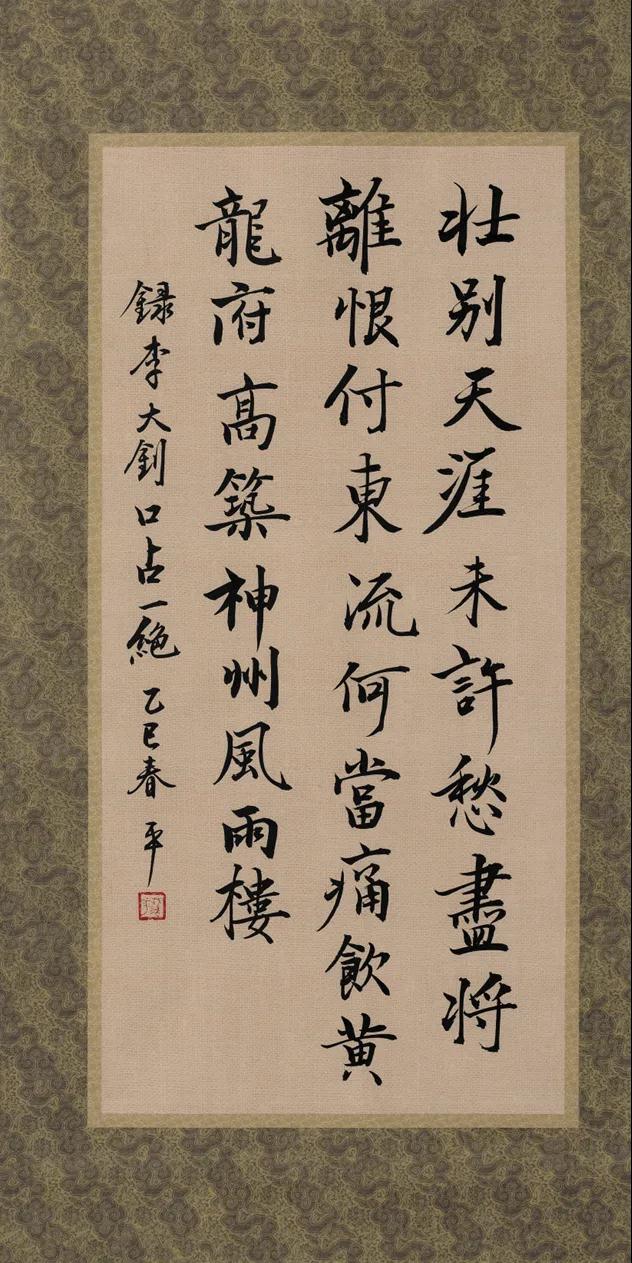 壮别天涯未許愁盡将
離恨付東流何當痛飲黄
龍府高築神州風雨樓
録李大釗口占一絶 乙巳春 平